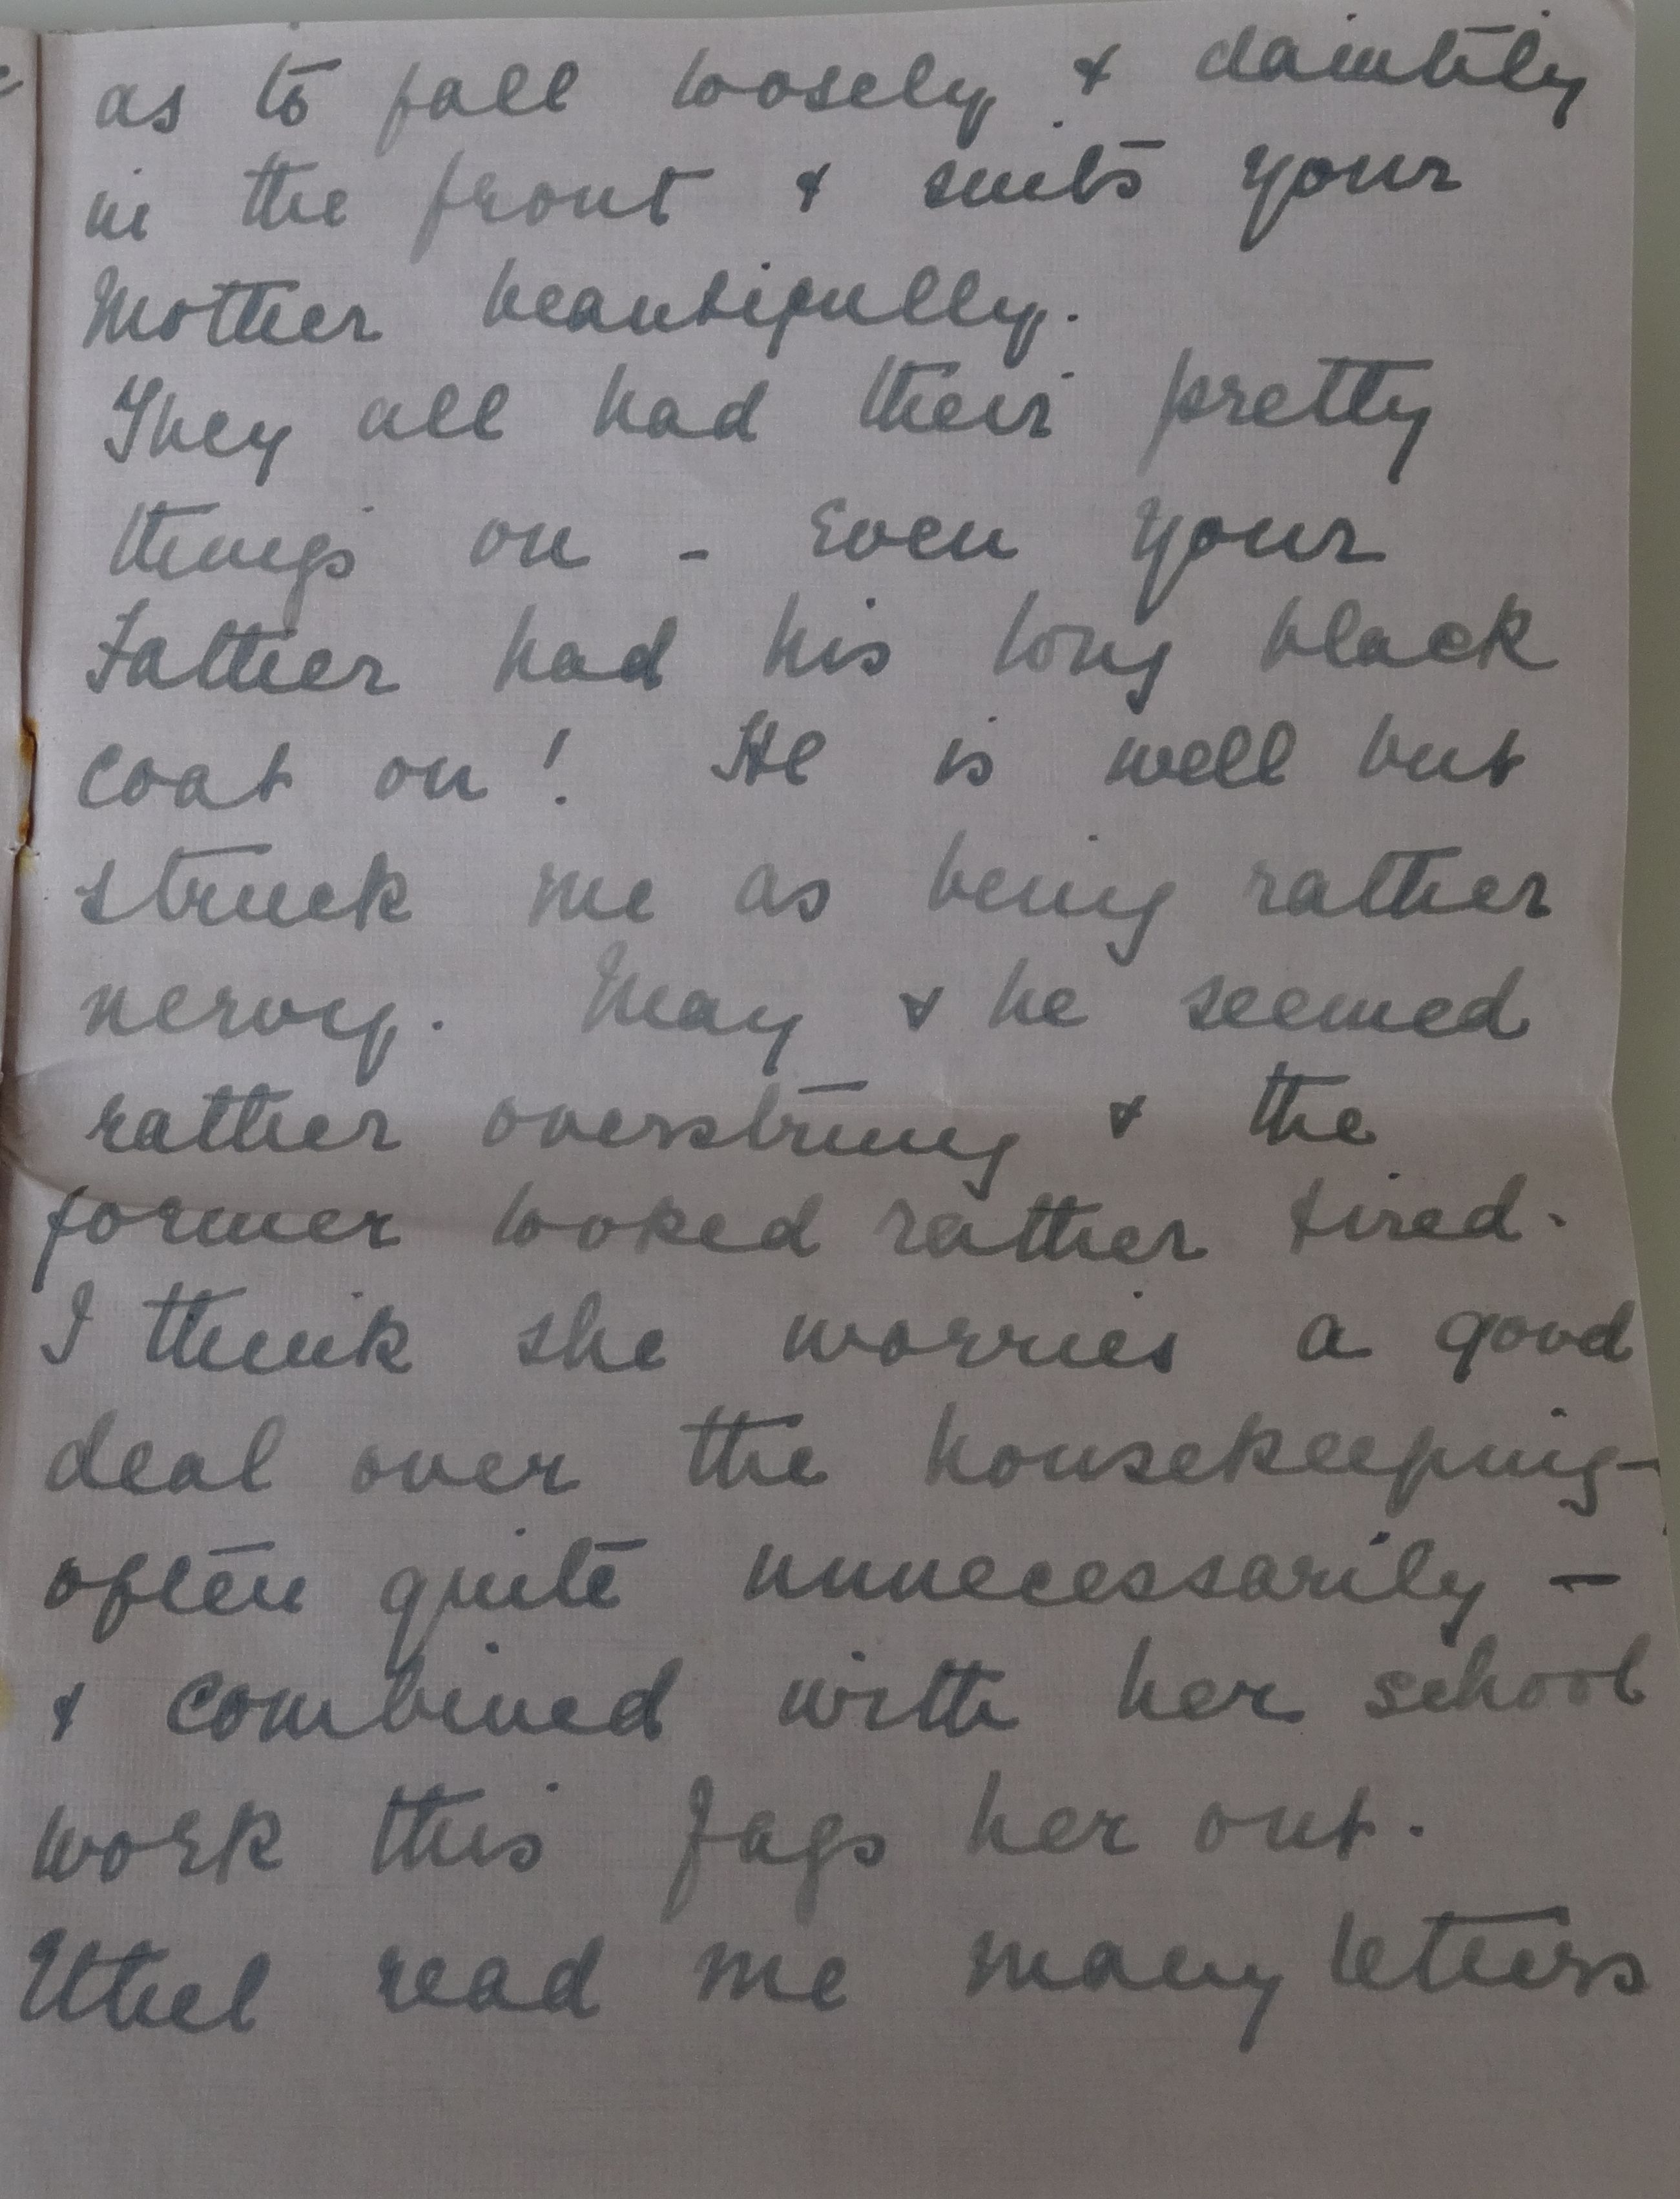 as to fall loosely & daintily
in the front & suits your
Mother beautifully.
They all had their pretty
things on - Even your
Father had his long black
coat on! He is well but
struck me as being rather
nervy. May & he seemed
rather overstrung & the
former looked rather tired.
I think she worries a good
deal over the housekeeping -
often quite unnecessarily -
& combined with her school
work this fags her out.
Ethel read me many letters